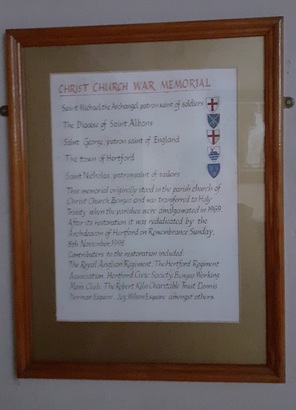 CHRIST CHURCH WAR MEMORIAL
Saint Michael the Archangel, patron saint of soldiers
The Diocese of Saint Albans
Saint George, patron saint of England
The town of Hertford
Saint Nicholas, patron saint of sailors
This memorial originally stood in the parish church of
Christ Church Bengeo and was transferred to Holy
Trinity when the parishes were amalgamated in 1969
After its restoration it was rededicated by the
Archdeacon of Hertford on Remembrance Sunday,
8th November 1998
Contributors to the restoration included
The Royal Anglian Regiment, The Hertford Regiment
Association, Hertford Civic Society, Bengeo Working
Mens Club, The Robert Kiln Charitable Trust Dennis
Norman Esquire, Wilson Esquire amongst others